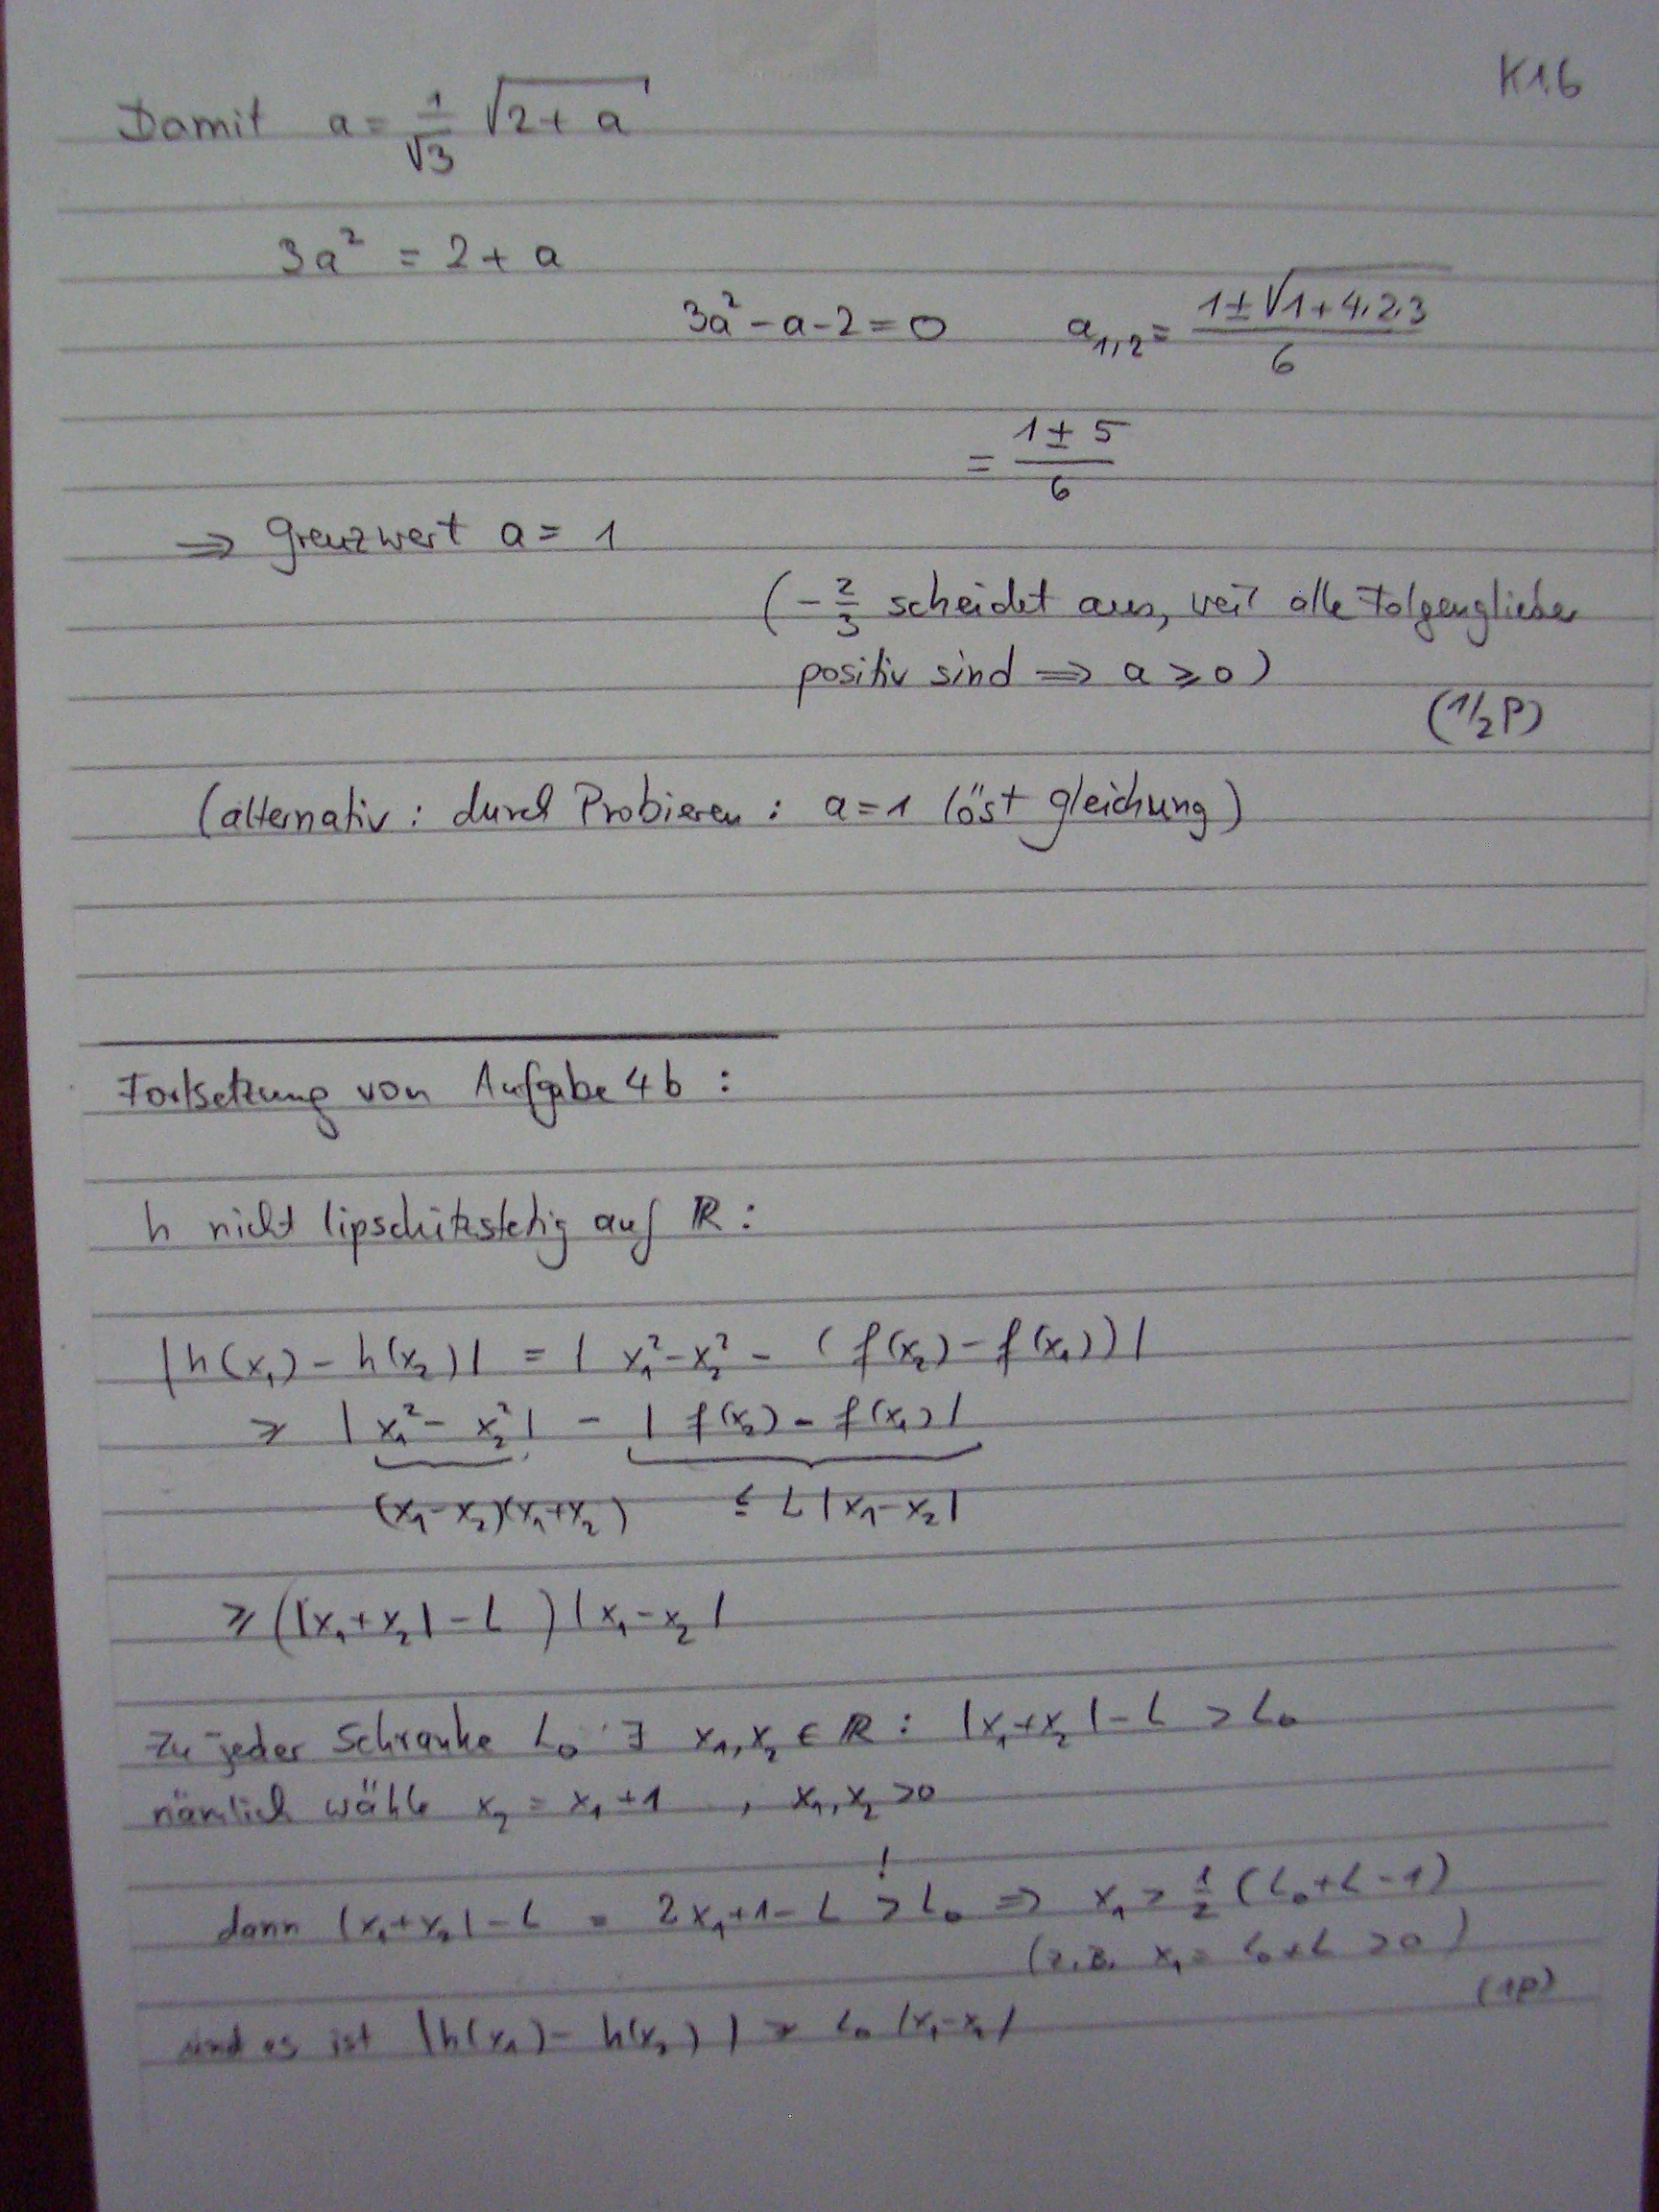 K1.6
Damit a = 1/√3 √(2 + a)
3a² = 2 + a
3a² - a - 2 = 0 a₁,₂ = (1 ± √(1 + 4·2·3))/6
= (1 ± 5)/6
⇒ Grenzwert a = 1
(-2/3 scheidet aus, weil alle Folgenglieder
positiv sind ⇒ a ≥ 0)
(1/2 P)
(alternativ: durch Probieren: a = 1 löst Gleichung)
Fortsetzung von Aufgabe 4b:
h nicht lipschitzstetig auf ℝ:
|h(x₁) - h(x₂)| = |x₁² - x₂² - (f(x₂) - f(x₁))|
≥ |x₁² - x₂²| - |f(x₂) - f(x₁)|
(x₁ - x₂)(x₁ + x₂) ≤ L|x₁ - x₂|
≥ (|x₁ + x₂| - L)|x₁ - x₂|
Zu jeder Schranke L₀ ∃ x₁, x₂ ∈ ℝ: |x₁ + x₂| - L > L₀
nämlich wähle x₂ = x₁ + 1, x₁, x₂ > 0
!
dann |x₁ + x₂| - L = 2x₁ + 1 - L > L₀ ⇒ x₁ > 1/2 (L₀ + L - 1)
(z.B. x₁ = L₀ + L > 0)
(1P)
und es ist |h(x₁) - h(x₂)| > L₀ |x₁ - x₂|